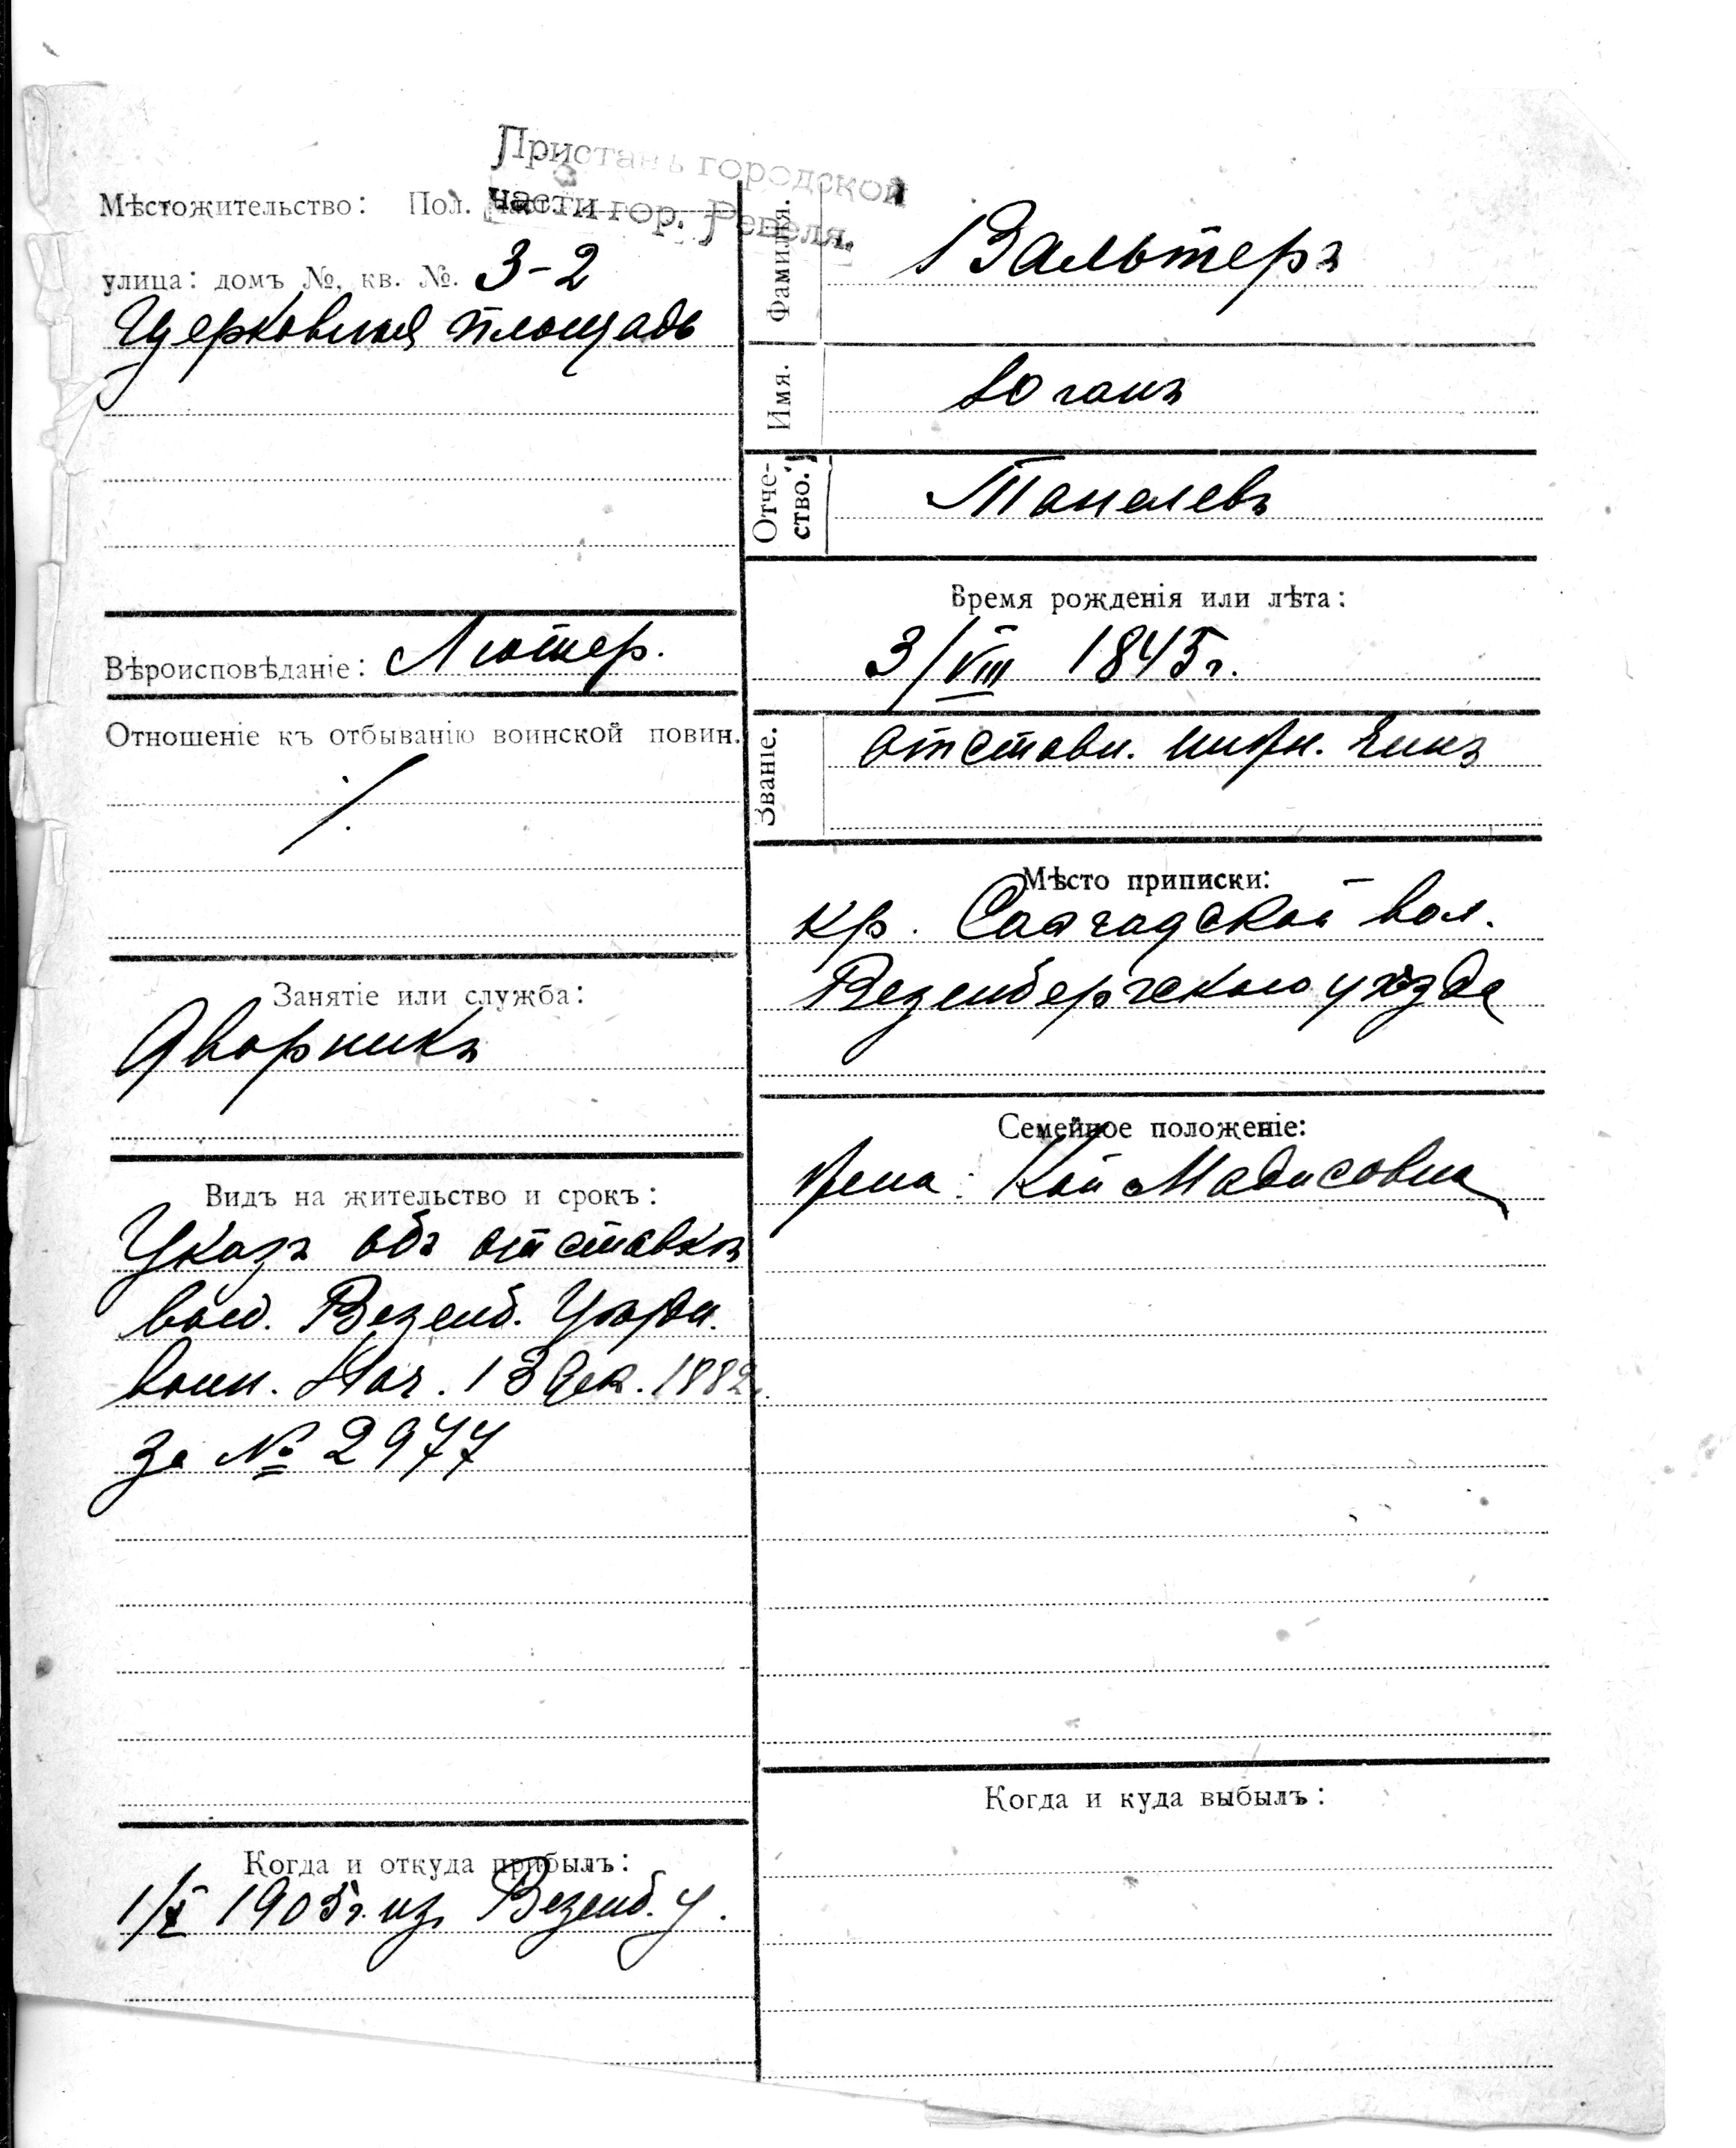 Приставъ городской
части гор. Ревеля.
Мѣстожительство: Пол.
улица: домъ №, кв. №. 3-2
Церковная площадь
Вѣроисповѣданіе: Лютер.
Отношеніе къ отбыванію воинской повин.
Занятіе или служба:
Дворникъ
Видъ на жительство и срокъ:
Указъ объ отставкѣ
выд. Везенб. Уѣздн.
воин. Нач. 13 Дек. 1882 г.
за № 2977
Когда и откуда прибылъ:
1/X 1905 г. изъ Везенб. у.
Фамилія.
Вальтеръ
Имя.
Юганъ
Отче-
ство.
Танелевъ
Время рожденія или лѣта:
3/VIII 1845 г.
Званіе.
отставн. нижн. чинъ
Мѣсто приписки:
кр. вол.
Везенбергскаго уѣзда
Семейное положеніе:
жена: Кай Мадисовна
Когда и куда выбылъ: